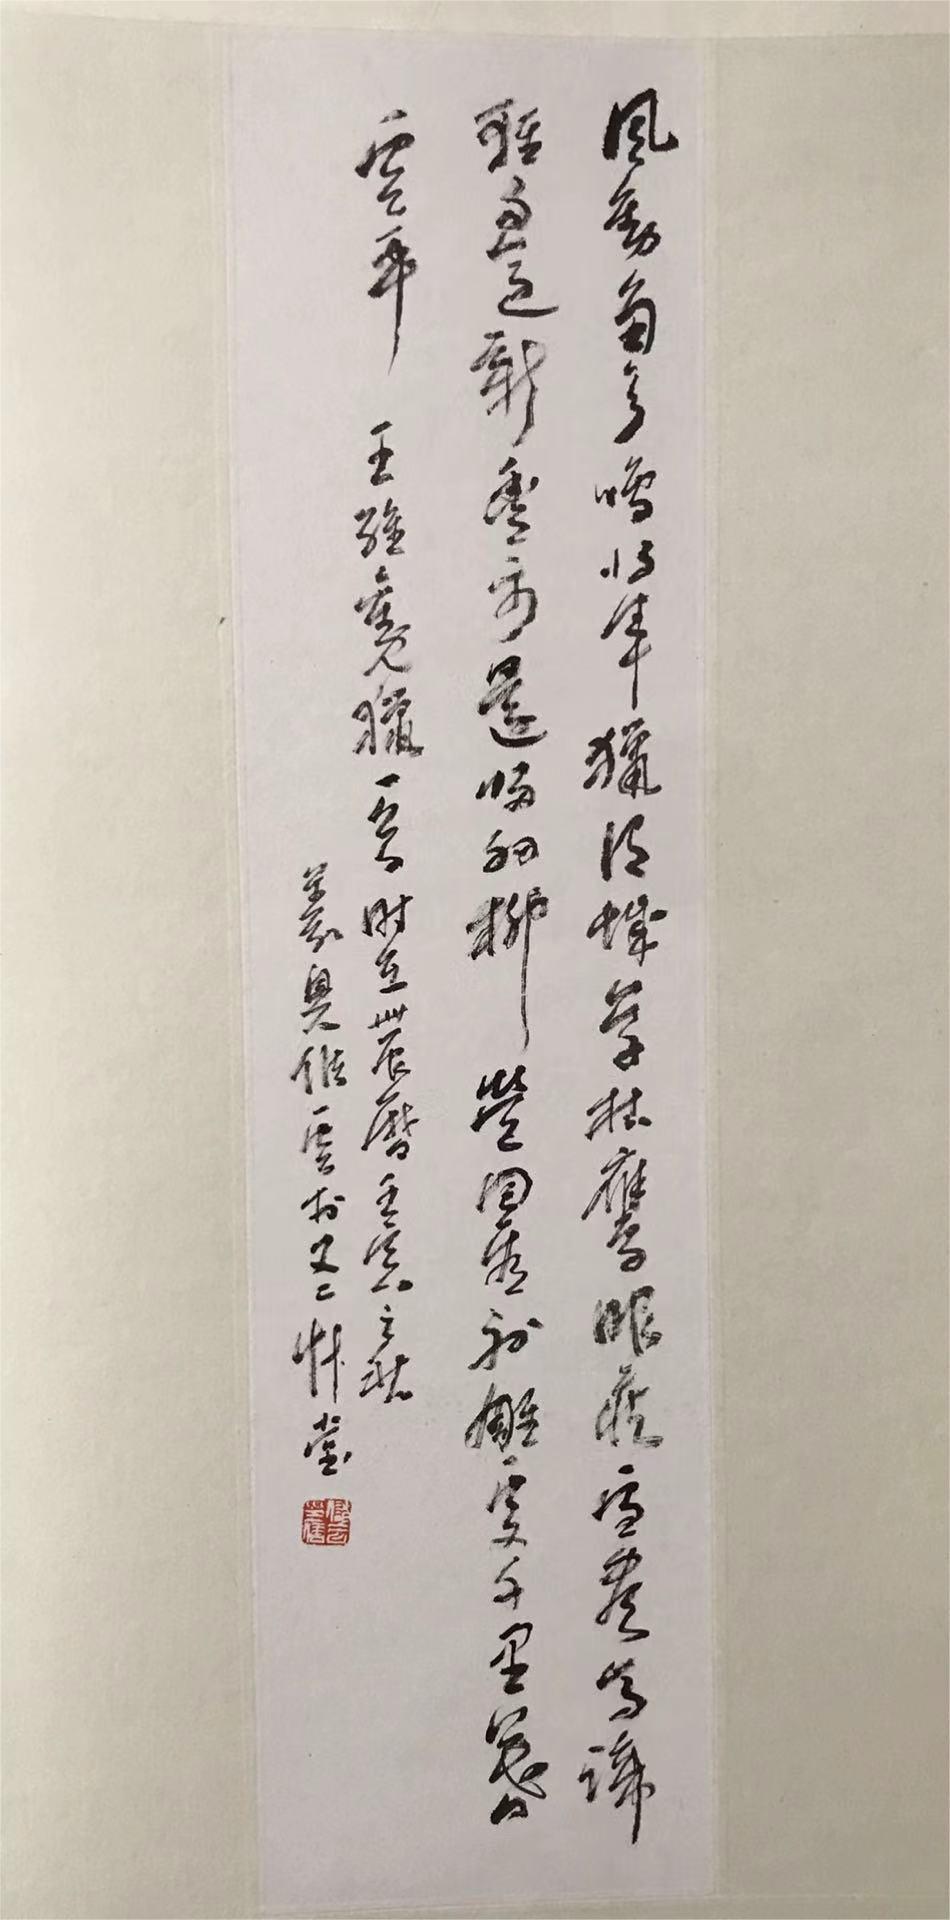 風勁角弓鳴將軍獵渭城草枯鷹眼疾雪盡馬蹄
輕忽過新豐市還歸細柳營回看射雕處千里暮
雲平 王維觀獵一首時在農曆壬寅之秋
義興儲雲於堂